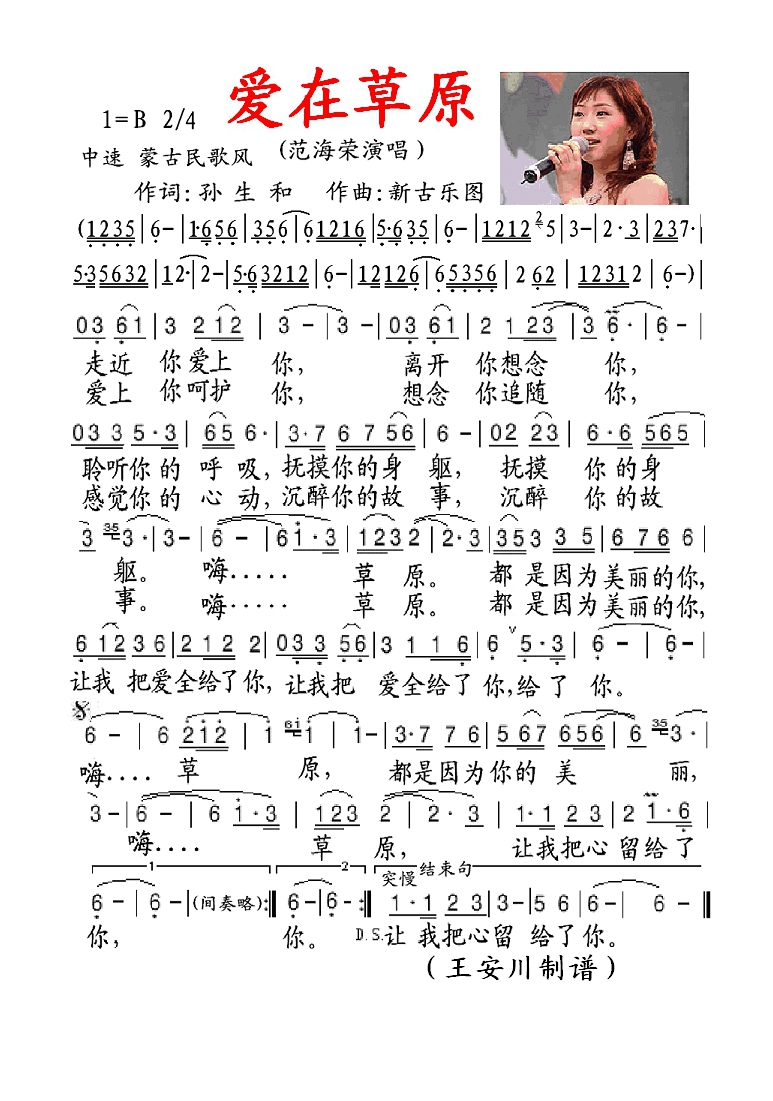 爱在草原
1=B 2/4
(范海荣演唱)
中速 蒙古民歌风
作词:孙生和 作曲:新古乐图
(1235|6-|1·656|3566|61216|5·635|6-|1212 2 5|3-|2·3|237·|
5·35632|12·|2-|5·63212|6-|12126|65356|2 62|12312|6-)
03 61|3 212|3-|3-|03 61|2 123|3 6·|6-|
走近 你爱上 你, 离开 你想念 你,
爱上 你呵护 你, 想念 你追随 你,
03 3 5·3|65 6·|3·7 6 7 56|6-|02 23|6·6 565|
聆听你的呼吸,抚摸你的身 躯, 抚摸 你的身
感觉你的心动,沉醉你的故 事, 沉醉 你的故
3 35 3·|3-|6-|61·3|1232|2·3|353 3 5|6 76 6|
躯。 嗨..... 草 原。 都是因为美丽的你,
事。 嗨..... 草 原。 都是因为美丽的你,
6 123 6|212 2|03 3 56|3 1 1 6|6 v 5·3|6-|6-|
让我 把爱全给了你,让我把 爱全给了你,给了 你。
6-|6 212|1 61 1|1-|3·7 7 6|5 67|656 6 35 3·|
嗨.... 草 原, 都是因为你的 美 丽,
3-|6-|6 1·3|123|2|2·3|1·1 2 3|2 1·6|
嗨.... 草 原, 让我把心留给了
1 2 突慢 结束句
6-|6-|(间奏略):‖6-|6-:‖1·1 2 3|3-|5 6|6-|6-‖
你, 你。 D.S.让 我把心留 给了你。
(王安川制谱)